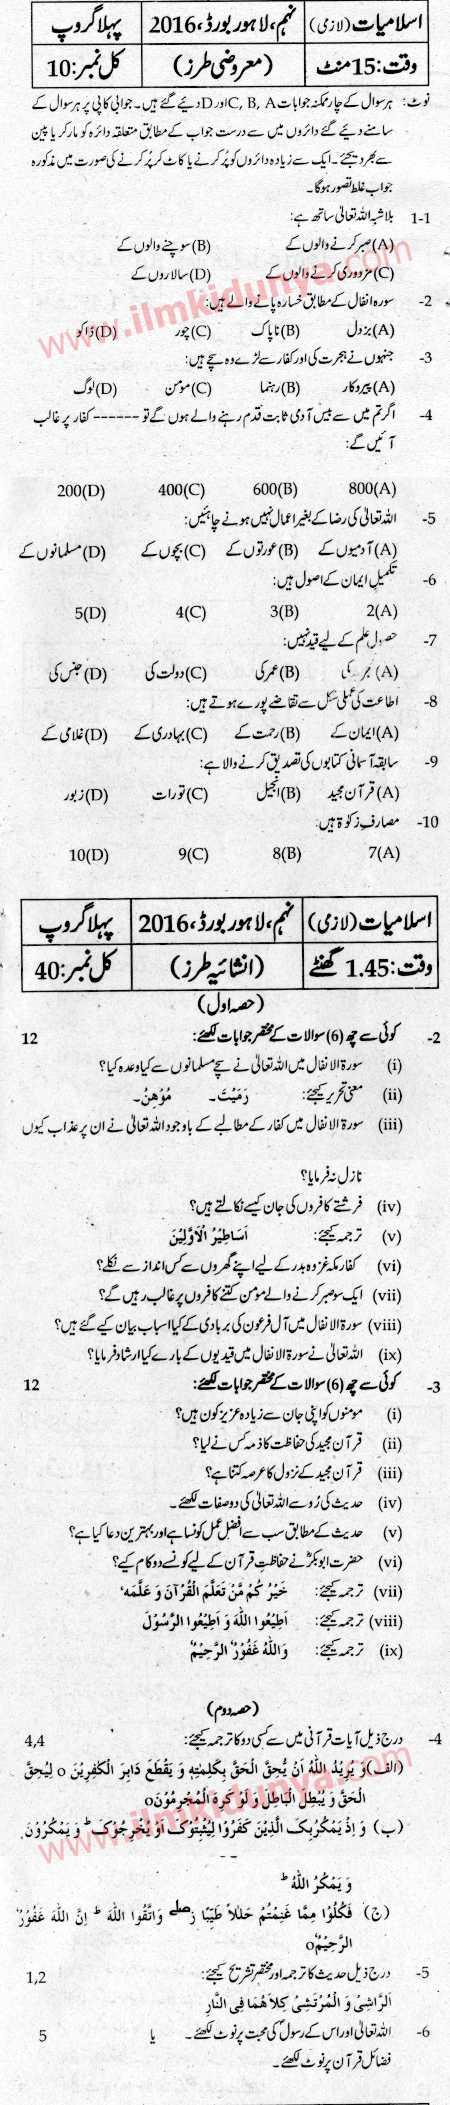 اسلامیات (لازمی) نہم، لاہور بورڈ، 2016 پہلا گروپ
وقت: 15 منٹ (معروضی طرز) کل نمبر: 10
نوٹ: ہر سوال کے چار ممکنہ جوابات C, B, A اور D دیئے گئے ہیں۔ جوابی کاپی پر ہر سوال کے
سامنے دیئے گئے دائروں میں سے درست جواب کے مطابق متعلقہ دائرہ کو مارکر یا پین
سے بھر دیجئے۔ ایک سے زیادہ دائروں کو پُر کرنے یا کاٹ کر پُر کرنے کی صورت میں مذکورہ
جواب غلط تصور ہوگا۔
1-1 بلاشبہ اللہ تعالیٰ ساتھ ہے:
(A) صبر کرنے والوں کے (B) سوچنے والوں کے
(C) مزدوری کرنے والوں کے (D) سالاروں کے
-2 سورہ انفال کے مطابق خسارہ پانے والے ہیں:
(A) بزدل (B) ناپاک (C) چور (D) ڈاکو
-3 جنہوں نے ہجرت کی اور کفار سے لڑے وہ سچے ہیں:
(A) پیروکار (B) رہنما (C) مومن (D) لوگ
-4 اگر تم میں سے بیس آدمی ثابت قدم رہنے والے ہوں گے تو ------ کفار پر غالب
آئیں گے:
800(A) 600(B) 400(C) 200(D)
-5 اللہ تعالیٰ کی رضا کے بغیر اعمال نہیں ہونے چاہئیں:
(A) آدمیوں کے (B) عورتوں کے (C) بچوں کے (D) مسلمانوں کے
-6 تکمیل ایمان کے اصول ہیں:
2(A) 3(B) 4(C) 5(D)
-7 حصول علم کے لیے قید نہیں:
(A) (B) عمر کی (C) دولت کی (D) جنس کی
-8 اطاعت کی عملی شکل سے تقاضے پورے ہوتے ہیں:
(A) ایمان کے (B) رحمت کے (C) بہادری کے (D) غلامی کے
-9 سابقہ آسمانی کتابوں کی تصدیق کرنے والا ہے:
(A) قرآن مجید (B) انجیل (C) تورات (D) زبور
-10 مصارف زکوٰۃ ہیں:
7(A) 8(B) 9(C) 10(D)
اسلامیات (لازمی) نہم، لاہور بورڈ، 2016 پہلا گروپ
وقت: 1.45 گھنٹے (انشائیہ طرز) کل نمبر: 40
(حصہ اول)
-2 کوئی سے چھ (6) سوالات کے مختصر جوابات لکھئے: 12
(i) سورۃ الانفال میں اللہ تعالیٰ نے سچے مسلمانوں سے کیا وعدہ کیا؟
(ii) معنی تحریر کیجئے: رَمَیْتَ۔ مُوْھِنُ۔
(iii) سورۃ الانفال میں کفار کے مطالبے کے باوجود اللہ تعالیٰ نے ان پر عذاب کیوں
نازل نہ فرمایا؟
(iv) فرشتے کافروں کی جان کیسے نکالتے ہیں؟
(v) ترجمہ کیجئے: اَسَاطِیْرُ الْاَوَّلِیْنَ
(vi) کفار مکہ غزوہ بدر کے لیے اپنے گھروں سے کس انداز سے نکلے؟
(vii) ایک سو صبر کرنے والے مومن کتنے کافروں پر غالب رہیں گے؟
(viii) سورۃ الانفال میں آل فرعون کی بربادی کے کیا اسباب بیان کیے گئے ہیں؟
(ix) اللہ تعالیٰ نے سورۃ الانفال میں قیدیوں کے بارے کیا ارشاد فرمایا؟
-3 کوئی سے چھ (6) سوالات کے مختصر جوابات لکھئے: 12
(i) مومنوں کو اپنی جان سے زیادہ عزیز کون ہیں؟
(ii) قرآن مجید کی حفاظت کا ذمہ کس نے لیا؟
(iii) قرآن مجید کے نزول کا عرصہ کتنا ہے؟
(iv) حدیث کی رُو سے اللہ تعالیٰ کی دو صفات لکھئے۔
(v) حدیث کے مطابق سب سے افضل عمل کونسا ہے اور بہترین دعا کیا ہے؟
(vi) حضرت ابوبکرؓ نے حفاظت قرآن کے لیے کونسے دو کام کیے؟
(vii) ترجمہ کیجئے: خَیْرُ کُمْ مَّنْ تَعَلَّمَ الْقُرْآنَ وَ عَلَّمَہٗ
(viii) ترجمہ کیجئے: اَطِیْعُوا اللّٰہَ وَ اَطِیْعُوا الرَّسُوْلَ
(ix) ترجمہ کیجئے: وَاللّٰہُ غَفُوْرٌ الرَّحِیْمٌ
(حصہ دوم)
-4 درج ذیل آیات قرآنی میں سے کسی دو کا ترجمہ کیجئے: 4,4
(الف) وَ یُرِیْدُ اللّٰہُ اَنْ یُّحِقَّ الْحَقَّ بِکَلِمٰتِہٖ وَ یَقْطَعَ دَابِرَ الْکٰفِرِیْنَ o لِیُحِقَّ
الْحَقَّ وَ یُبْطِلَ الْبَاطِلَ وَ لَوْ کَرِہَ الْمُجْرِمُوْنَ o
(ب) وَ اِذْ یَمْکُرُبِکَ الَّذِیْنَ کَفَرُوْا لِیُثْبِتُوْکَ اَوْ یُخْرِجُوْکَ ؕ وَ یَمْکُرُوْنَ
وَ یَمْکُرُ اللّٰہُ ؕ
(ج) فَکُلُوْا مِمَّا غَنِمْتُمْ حَلٰلًا طَیِّبًا ز صلے وَاتَّقُوا اللّٰہَ ؕ اِنَّ اللّٰہَ غَفُوْرٌ
الرَّحِیْمٌ o
-5 درج ذیل حدیث کا ترجمہ اور مختصر تشریح کیجئے: 1,2
اَلرَّاشِیْ وَ الْمُرْتَشِیْ کِلَاھُمَا فِی النَّارِ
-6 اللہ تعالیٰ اور اس کے رسولؐ کی محبت پر نوٹ لکھئے۔ یا 5
فضائل قرآن پر نوٹ لکھئے۔
www.ilmkidunya.com
www.ilmkidunya.com